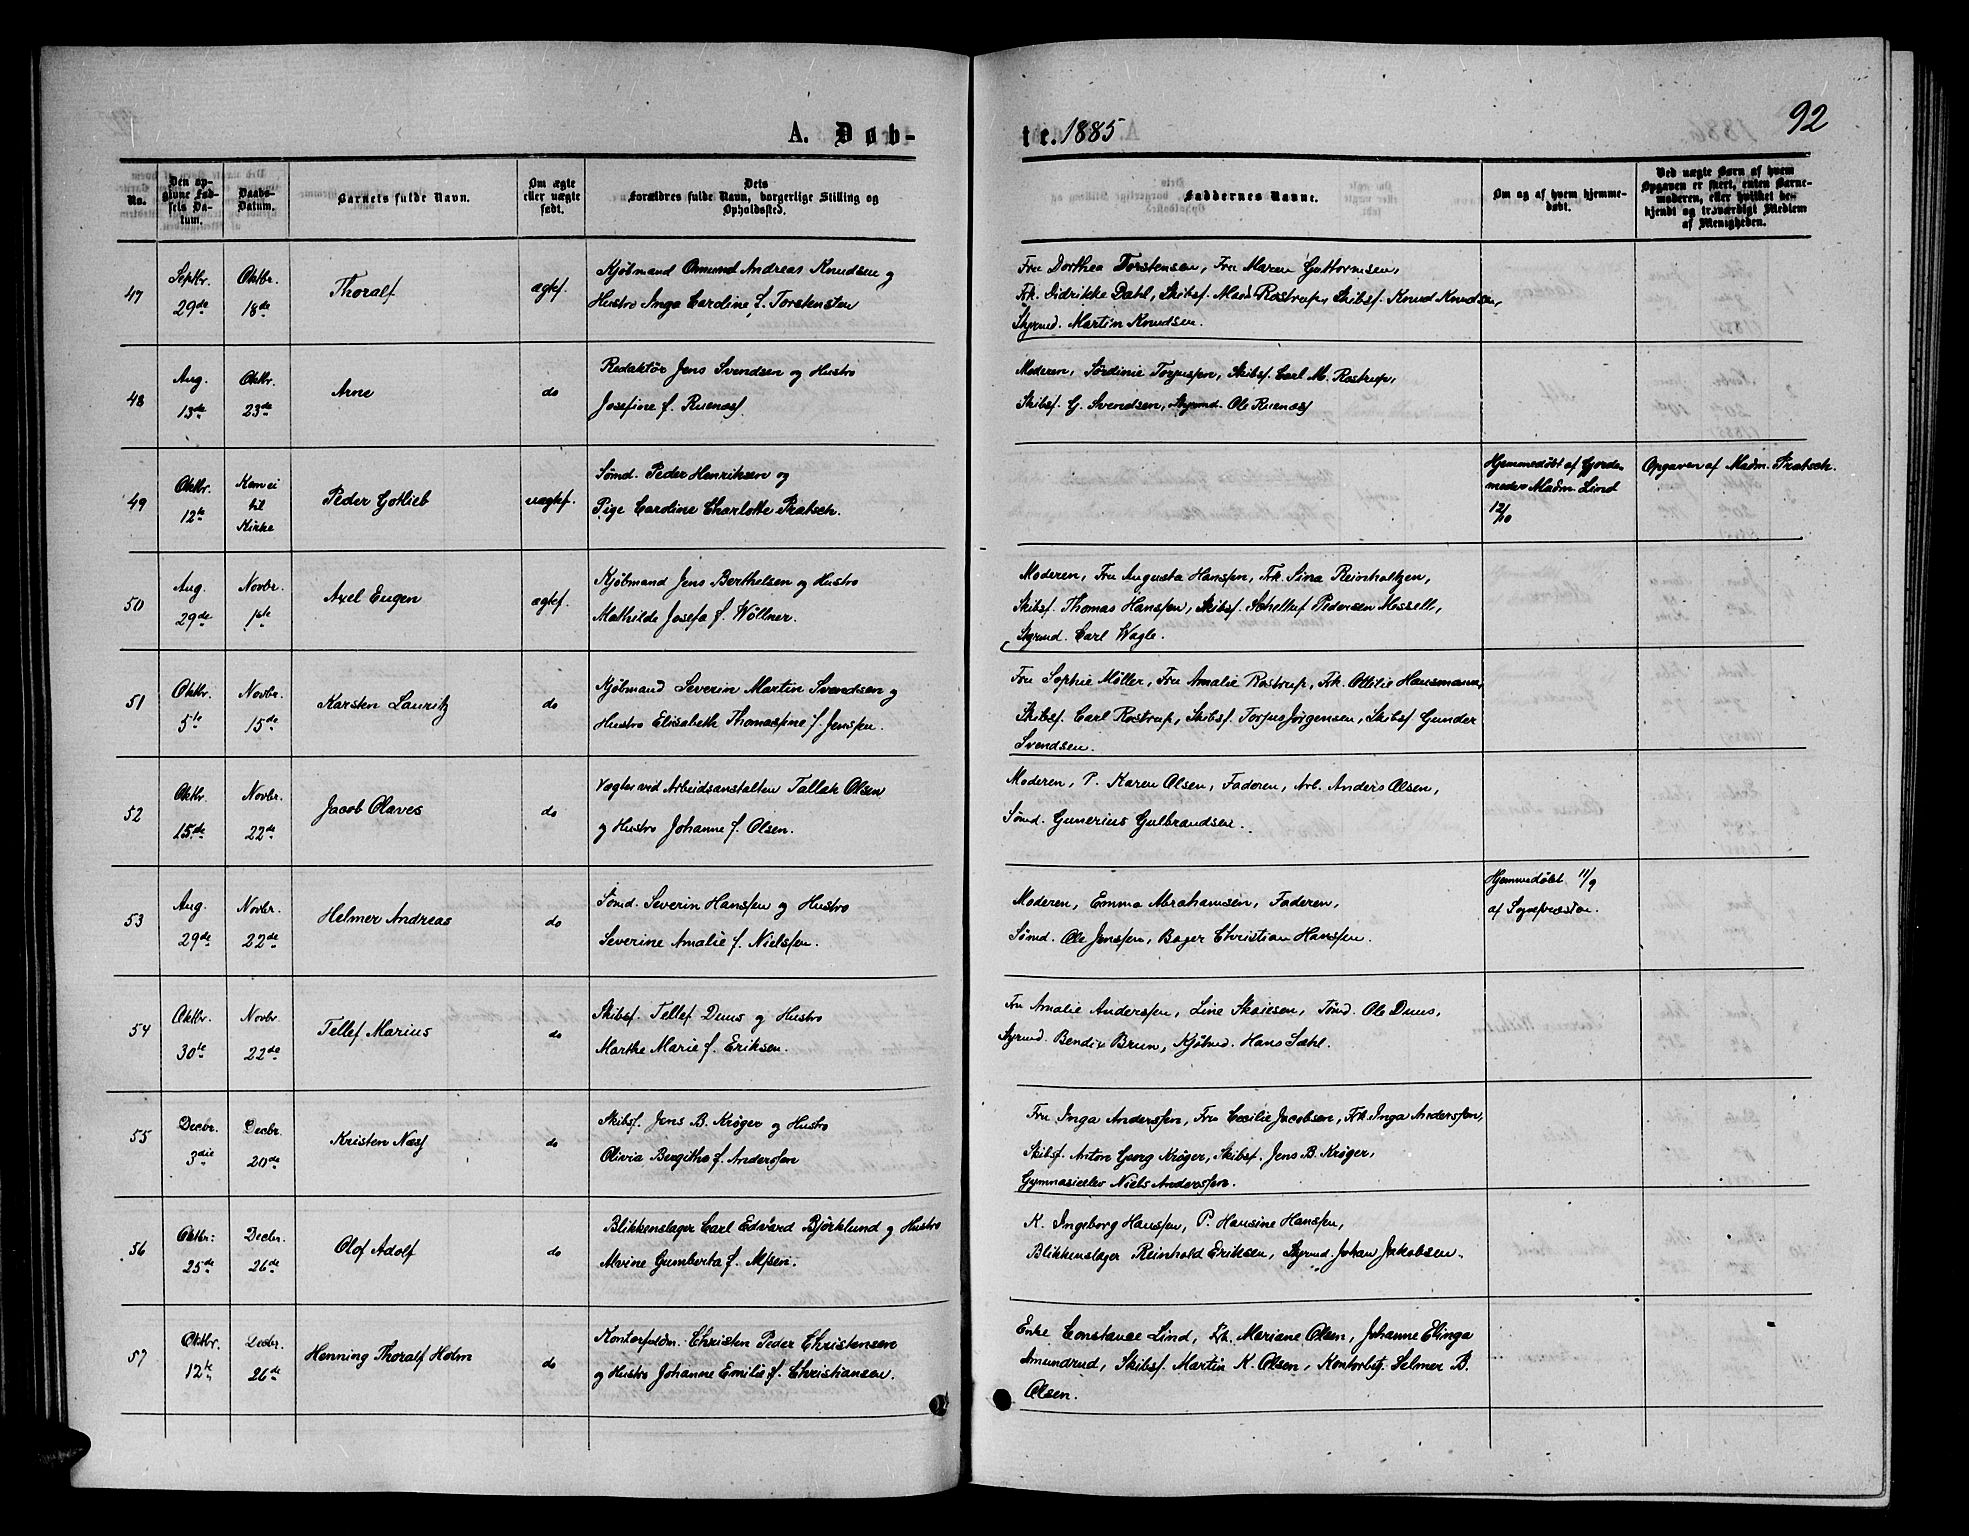 92
A. Døb-
te. 1885
No.
Den op-
givne Fød-
sels Da-
tum.
Daabs-
Datum.
Barnets fulde Navn.
Om ægte
eller uægte
født.
Dets
Forældres fulde Navn, borgerlige Stilling og
Opholdssted.
Faddernes Navne.
Om og af hvem hjemme-
døbt.
Ved uægte Børn af hvem
Opgaven er skeet, enten Barne-
moderen, eller hvilket be-
kjendt og troværdigt Medlem
af Menigheden.
47
Septbr.
29de
Oktbr.
18de
Thoralf
ægtef.
Kjøbmand Omund Andreas Knudsen og
Hustro Inga Cardine f. Torstensen
Fru Dorthea Torstensen, Fru Maren Guttormsen,
Frk. Didrikke Dahl, Skibsf. Mads Rostrup, Skibsf. Knud Knudsen,
Styrmd. Martin Knudsen.
48
Aug.
13de
Oktbr.
23de
Arne
do
Redaktør Jens Svendsen og Hustro
Josefine f. Ruenæs
Moderen, Jørdinie Torjussen, Skibsf. Carl M. Rostrup,
Skibsf. G. Svendsen, Styrmd. Ole Ruenæs
49
Oktbr.
12te
Kom ei
til
Kirke
Peder Gotlieb
uægtef.
Sømd. Peder Henriksen og
Pige Cardine Charlotte Pratsch.
Hjemmedøbt af Gjorde-
moder Madm. Lind
12/10
Opgaven af Madm. Pratsch.
50
Aug.
29de
Novbr.
1ste
Axel Eugen
ægtef.
Kjøbmand Jens Berthelsen og Hustro
Mathilde Josefa f. Wöllner.
Moderen, Fru Augusta Hanssen, Frk. Sina Reinholtzen,
Skibsf. Thomas Hanssen, Skibsf. Schelluf Pedersen Messell,
Styrmd. Carl Wagle.
51
Oktbr.
5te
Novbr.
15de
Karsten Lauritz
do
Kjøbmand Severin Martin Svendsen og
Hustro Elisabeth Thomassine f. Jenssen.
Fru Sophie Möller, Fru Amalie Rostrup, Frk. Ottilie Hansmann,
Skibsf. Carl Rostrup, Skibsf. Torjus Jörgensen, Skibsf Gunder
Svendsen.
52
Oktbr.
15de
Novbr.
22de
Jacob Olaves
do
Vægter ved Arbeidsanstalten Tallak Olsen
og Hustro Johanne f. Olsen.
Moderen, P. Karen Olsen, Faderen, Arb. Anders Olsen,
Sømd. Gunerius Gulbrandsen.
53
Aug.
29de
Novbr.
22de
Helmer Andreas
do
Sömd. Severin Hanssen og Hustro
Severine Amalie f. Nielssen.
Moderen, Emma Abrahamsen, Faderen,
Sømd. Ole Jenssen, Bager Christian Hanssen.
Hjemmedøbt 11/9
af Sognepresten.
54
Oktbr.
30te
Novbr.
22de
Tellef Marius
do
Skibsf. Tellef Duus og Hustro
Marthe Marie f. Eriksen.
Fru Amalie Anderssen, Line Skaiesen, Tömd. Ole Duus,
Styrmd. Bendix Brun, Kjøbmd. Hans Sæhl.
55
Decbr.
3die
Decbr.
20de
Kristen Næss
do
Skibsf. Jens B. Krøger og Hustro
Olivia Bergithe f. Anderssen
Fru Inga Anderssen, Fru Cecilie Jacobsen, Frk. Inga Anderssen,
Skibsf. Anton Georg Krøger, Skibsf. Jens B. Krøger,
Gymnasieelev Niels Anderssen.
56
Oktbr:
25de
Decbr.
26de
Olof Adolf
do
Blikkenslager Carl Edvard Björklund og Hustro
Alvine Gumberta f. Alfsen.
K. Ingeborg Hanssen, P. Hansine Hanssen,
Blikkenslager Reinhold Eriksen, Styrmd. Johan Jakobsen.
57
Oktbr.
12te
Decbr.
26de
Henning Thoralf Holm
do
Kontorfuldm. Christen Peder Christensen
og Hustro Johanne Emilie f. Christiansen.
Enke Constance Lind, Frk. Mariane Olsen, Johanne Elinga
Amundrud, Skibsf. Martin K. Olsen, Kontorbetj. Selmer B.
Olsen.